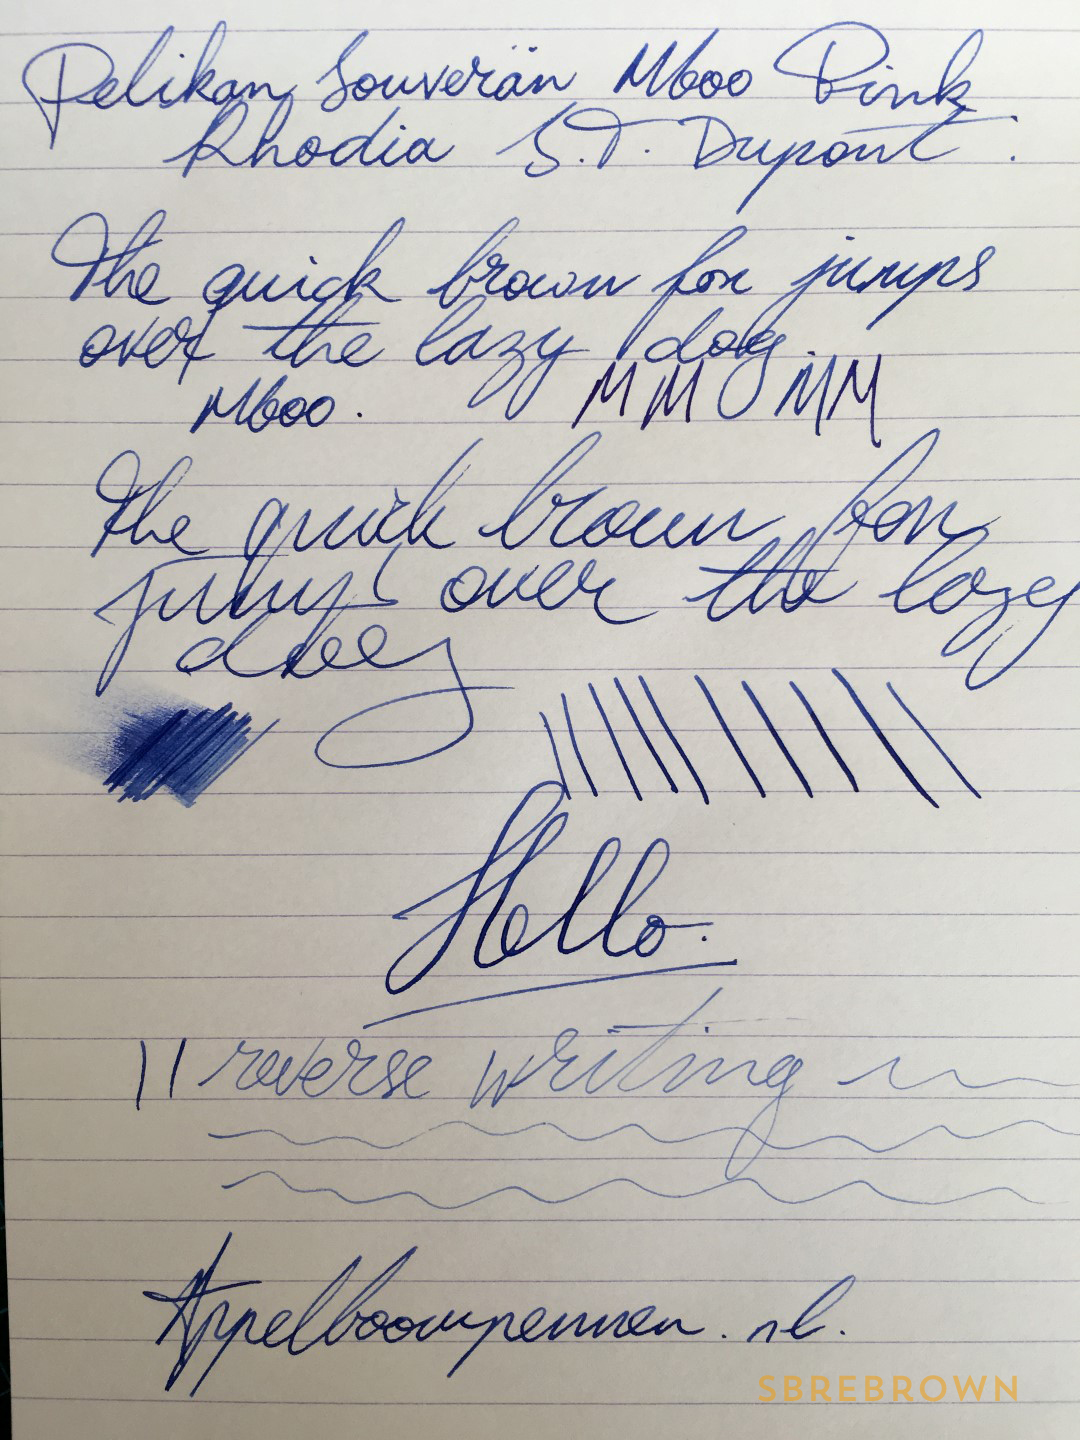 Pelikan Souverän M600 Pink
Rhodia S.T. Dupont.
The quick brown fox jumps
over the lazy dog.
M600. MM MM
The quick brown fox
jumps over the lazy
dog
Hello.
reverse writing
Appelboompennen.nl.
SBREBROWN